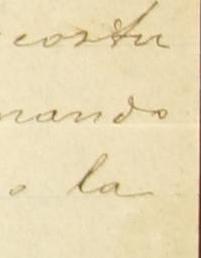 costu
nando
o la